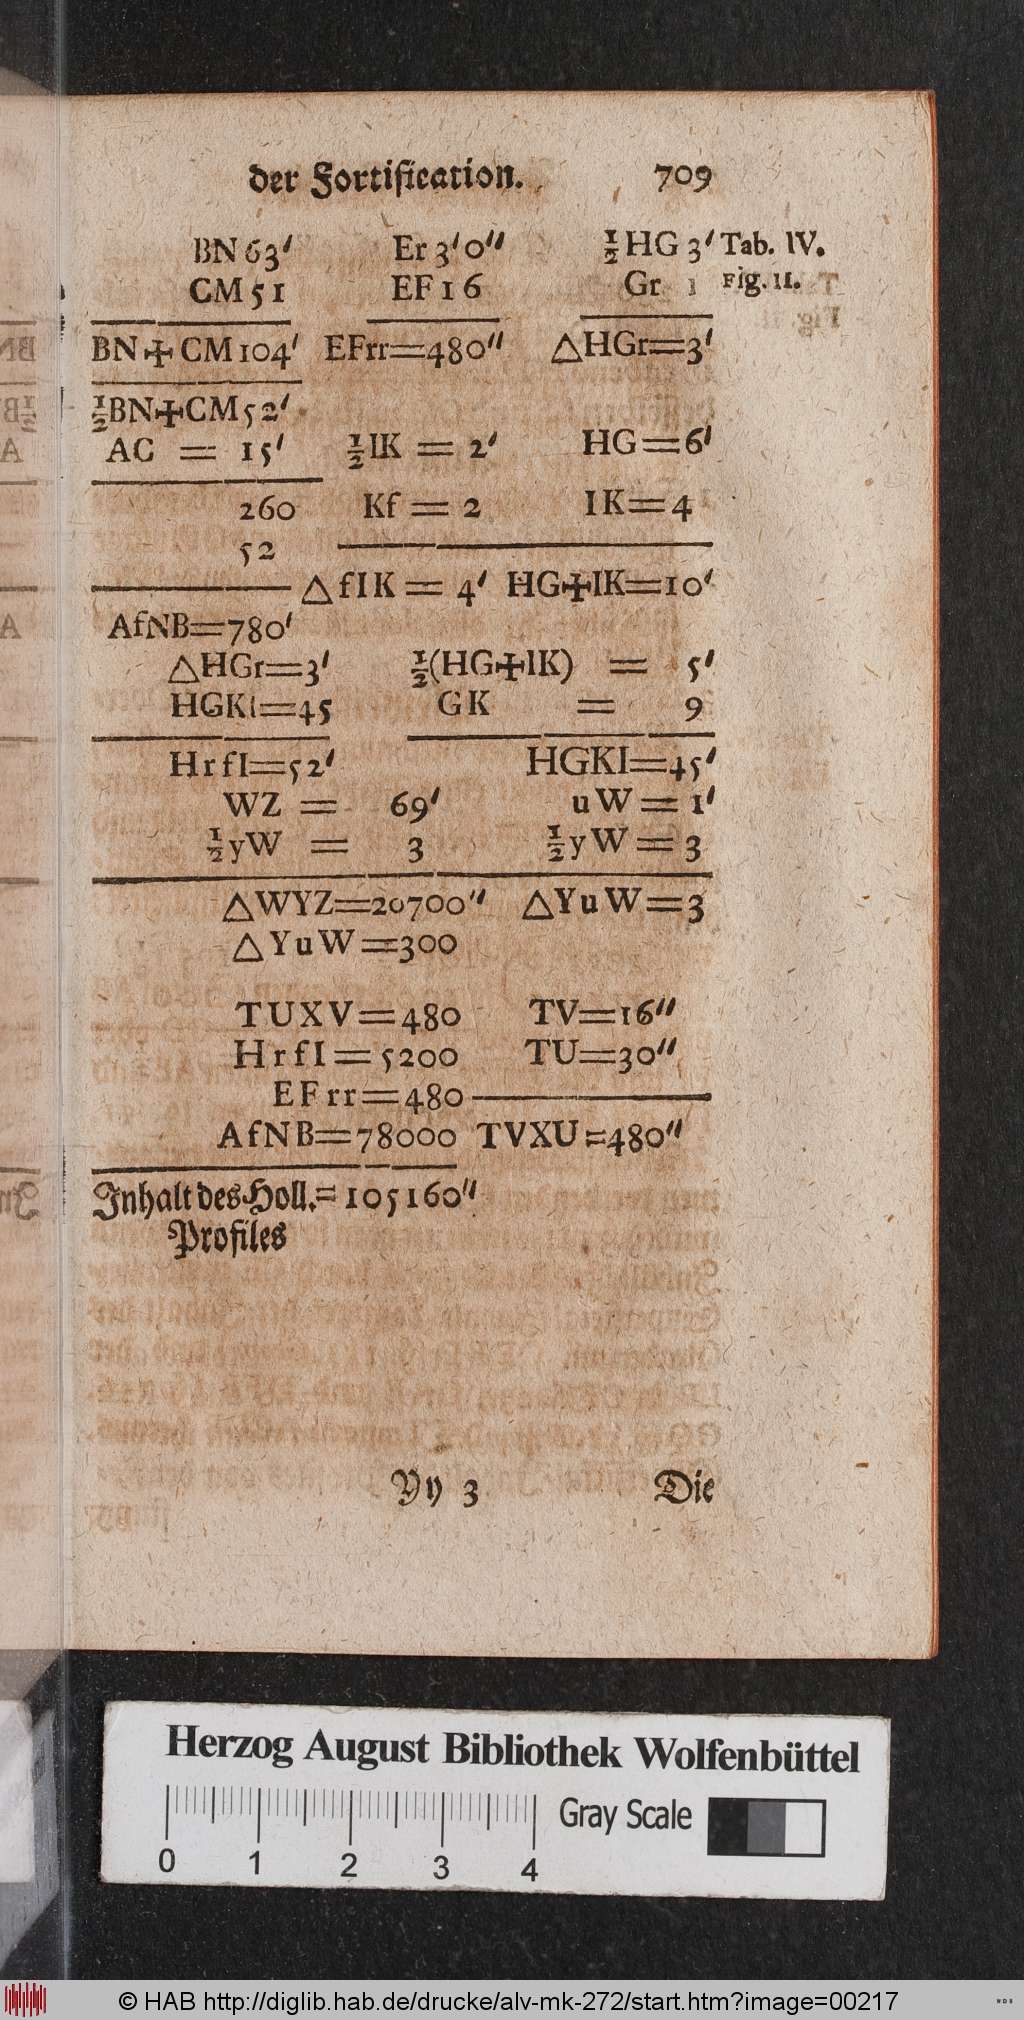 der Fortification. 709
BN 63′ Er 3′0″ ½HG 3′ Tab. IV.
CM 51 EF 16 Gr 1 Fig. II.
BN + CM 104′ EFrr=480″ △HGr=3′
½BN+CM 52′
AC = 15′ ½IK = 2′ HG=6′
260 Kf = 2 IK=4
52
△fIK = 4′ HG+IK=10′
AfNB=780′
△HGr=3′ ½(HG+IK) = 5′
HGKI=45 GK = 9
HrfI=52′ HGKI=45′
WZ = 69′ uW = 1′
½yW = 3 ½yW = 3
△WYZ=20700″ △YuW=3
△YuW=300
TUXV=480 TV=16″
HrfI=5200 TU=30″
EFrr=480
AfNB=78000 TVXU=480″
Inhalt des Holl.= 105160″
Profiles
Yy 3 Die
Herzog August Bibliothek Wolfenbüttel
Gray Scale
0 1 2 3 4
© HAB http://diglib.hab.de/drucke/alv-mk-272/start.htm?image=00217